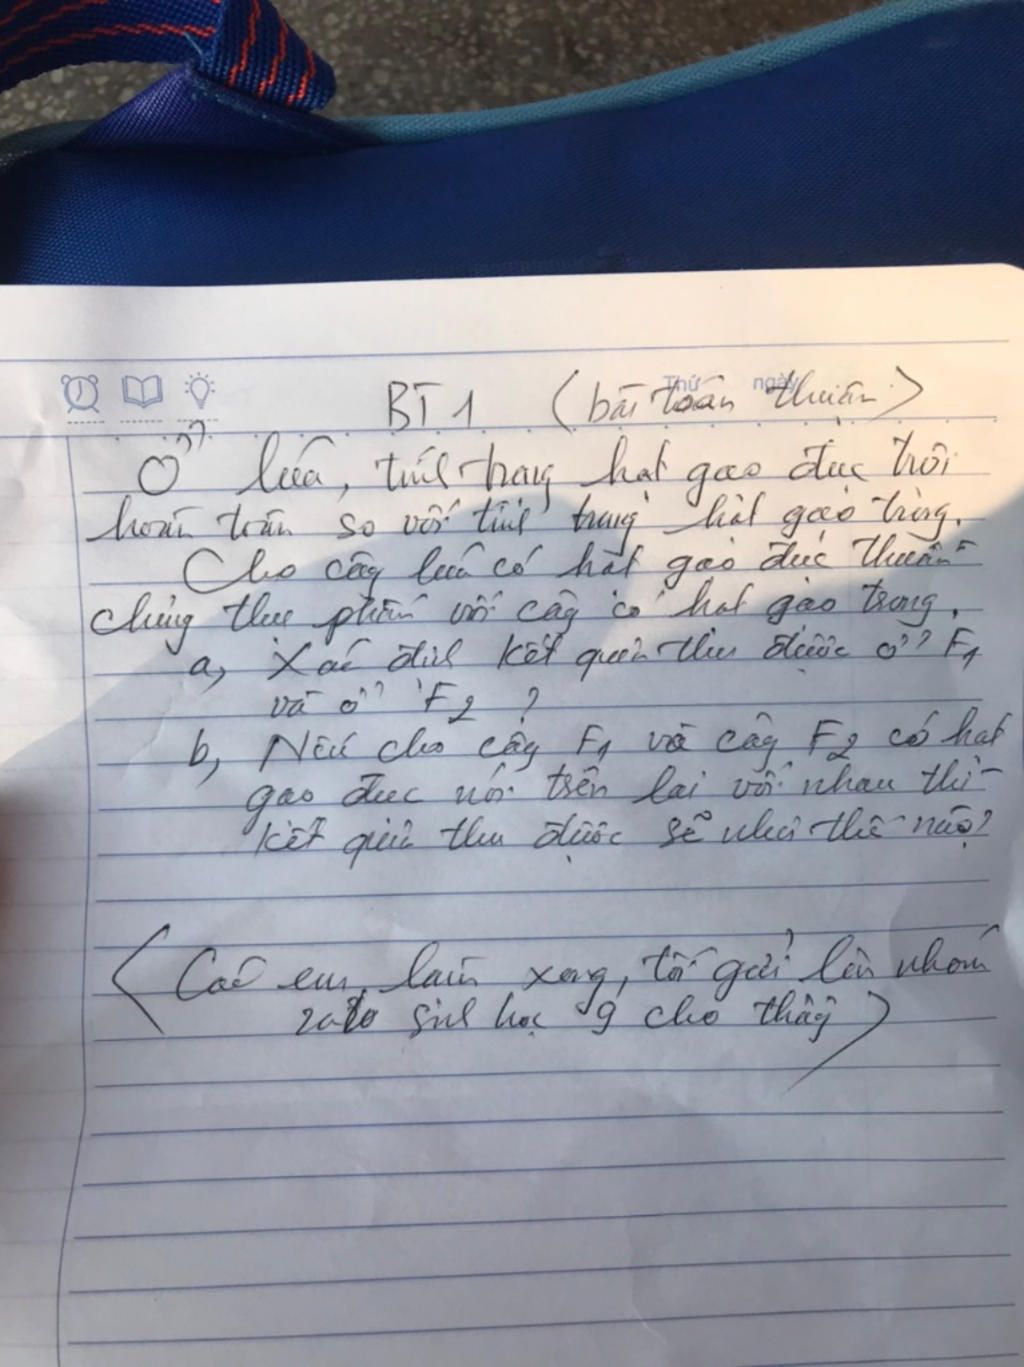 Thứ ngày
BT1 (bài toán thuận)
Ở lúa, tính trạng hạt gạo đục trội
hoàn toàn so với tính trạng hạt gạo trong.
Cho cây lúa có hạt gạo đục thuần
chủng thụ phấn với cây có hạt gạo trong.
a, Xác định kết quả thu được ở F1
và ở F2 ?
b, Nếu cho cây F1 và cây F2 có hạt
gạo đục nói trên lai với nhau thì
kết quả thu được sẽ như thế nào?
(Các em làm xong, tối gửi lên nhóm
zalo sinh học 9 cho thầy)